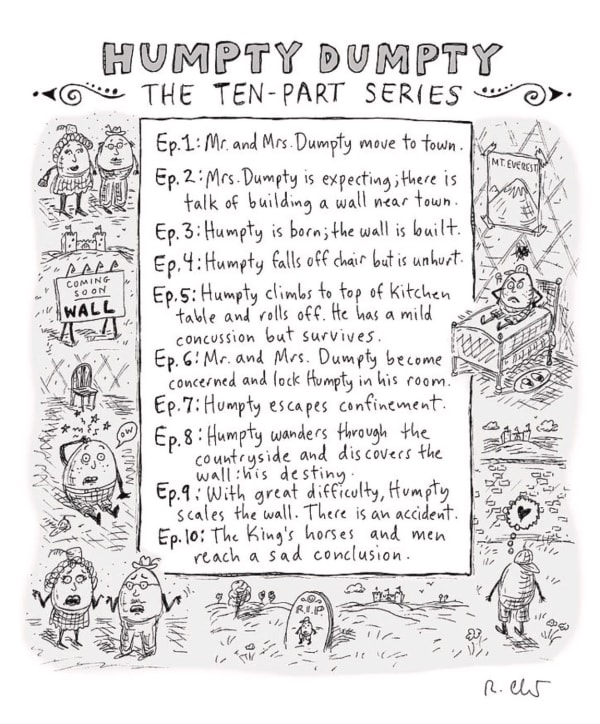 HUMPTY DUMPTY
THE TEN-PART SERIES
Ep.1: Mr. and Mrs. Dumpty move to town.
Ep. 2: Mrs. Dumpty is expecting; there is
talk of building a wall near town.
Ep. 3: Humpty is born; the wall is built.
Ep. 4: Humpty falls off chair but is unhurt.
Ep. 5: Humpty climbs to top of kitchen
table and rolls off. He has a mild
concussion but survives.
Ep. 6: Mr. and Mrs. Dumpty become
concerned and lock Humpty in his room.
Ep. 7: Humpty escapes confinement.
Ep. 8: Humpty wanders through the
countryside and discovers the
wall: his destiny.
Ep. 9: With great difficulty, Humpty
scales the wall. There is an accident.
Ep. 10: The King's horses and men
reach a sad conclusion.
COMING
SOON
WALL
OW
MT. EVEREST
R.I.P